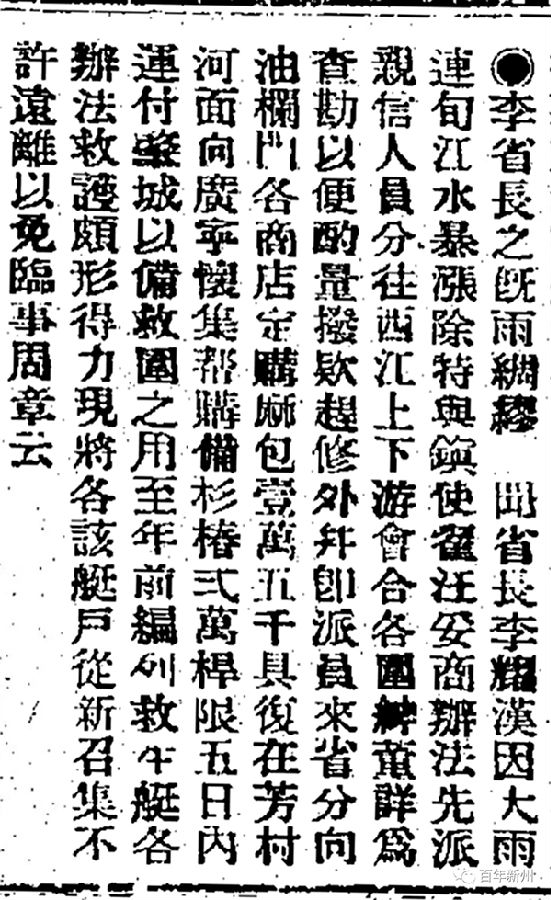 ●李省長之既雨綢繆　聞省長李耀漢因大雨
連旬江水暴漲除特與鎮使翟汪妥商辦法先派
親信人員分往西江上下游會合各圍紳董詳爲
查勘以便酌量撥欵趕修外幷卽派員來省分向
油欄門各商店定購麻包壹萬五千具復在芳村
河面向廣寧懷集帮購備杉樁弍萬桿限五日內
運付肇城以備救圍之用至年前編列救生艇各
辦法救護頗形得力現將各該艇戶從新召集不
許遠離以免臨事周章云
百年新州